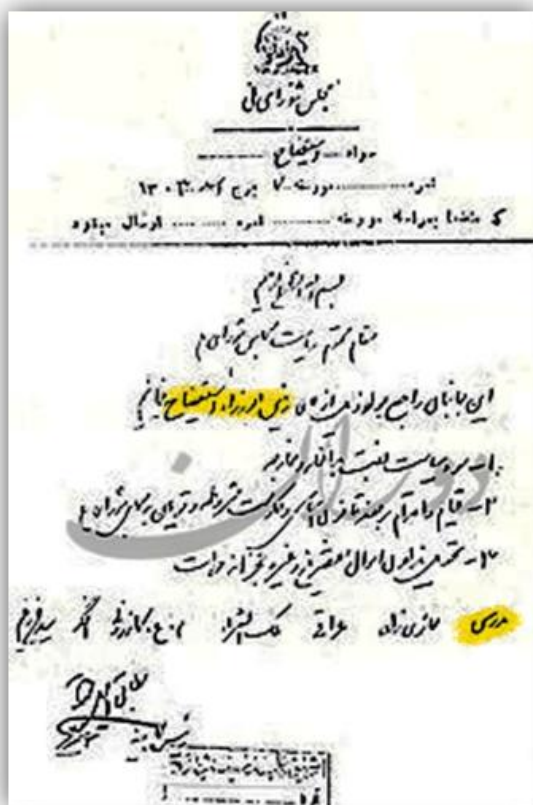 مجلس شورای ملی
سواد استیضاح
نمره مورخه ۷ برج اسد ۱۳۰۳
که منضما بمراسله مورخه نمره ارسال میشود
بسم الله الرحمن الرحیم
مقام محترم ریاست مجلس شورای
این جانبان راجع بمواد ذیل از آقای رئیس الوزراء استیضاح مینمائیم
۱- سوء سیاست نسبت بداخله و خارجه
۲- قیام و اقدام بر ضد قانون اساسی و حکومت مشروطه و توهین به مجلس شورای
۳- تحویل ندادن اموال مقصرین و غیره بخزانه دولت
مدرس حائری زاده عراقی ملک الشعرا کازرونی اخگر سید
دوران